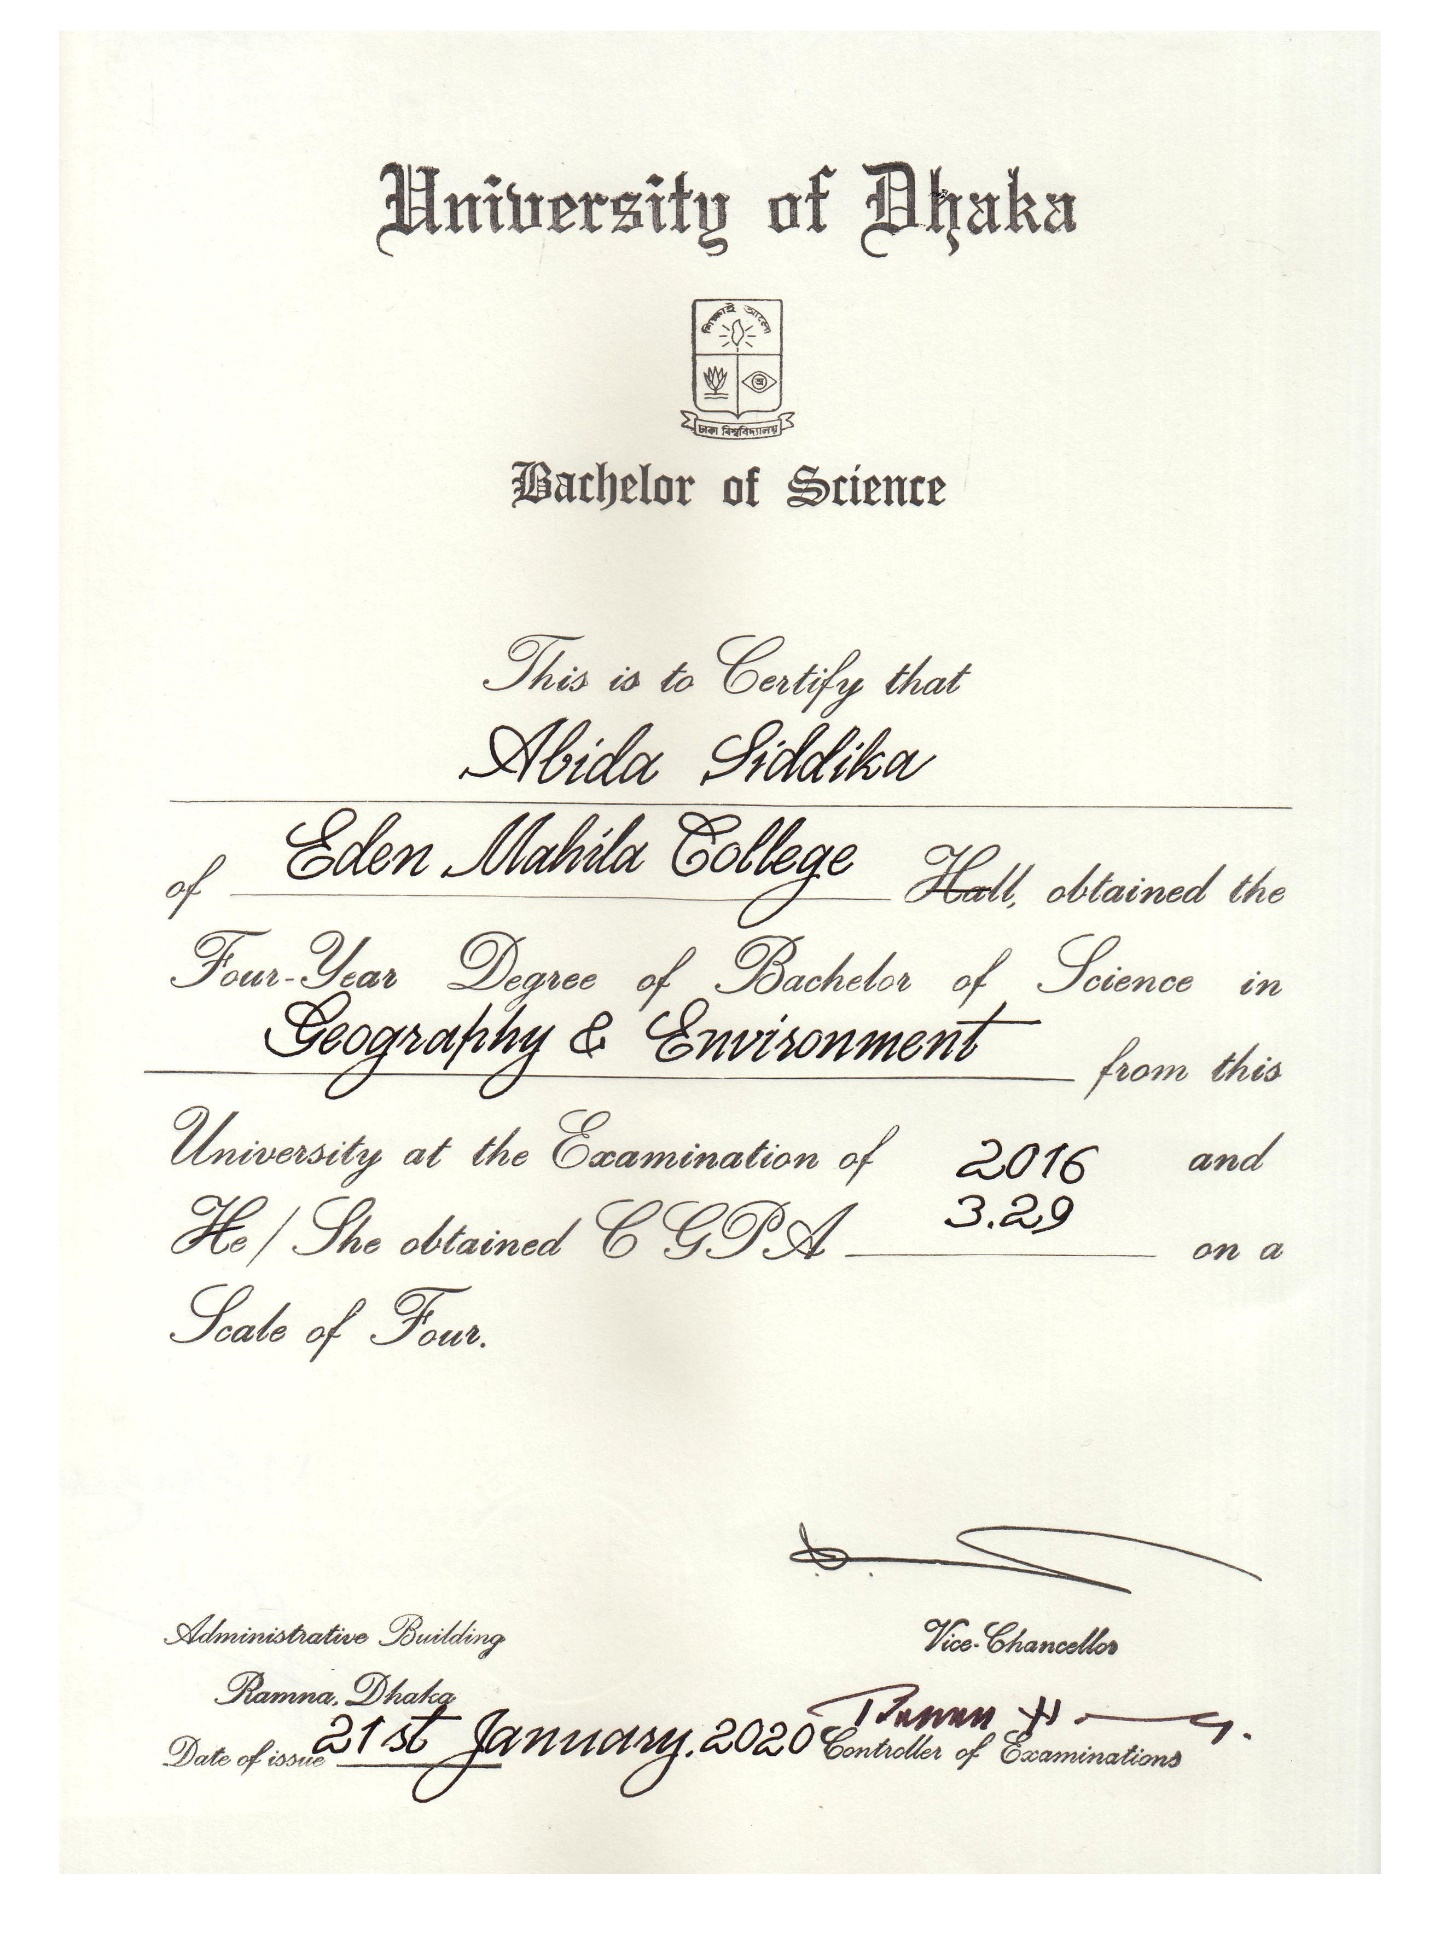 University of Dhaka
শিক্ষাই আলো
ঢাকা বিশ্ববিদ্যালয়
Bachelor of Science
This is to Certify that
Abida Siddika
of Eden Mahila College Hall, obtained the
Four-Year Degree of Bachelor of Science in
Geography & Environment from this
University at the Examination of 2016 and
He/She obtained CGPA 3.29 on a
Scale of Four.
Administrative Building
Vice-Chancellor
Ramna, Dhaka
Date of issue 21st January, 2020
Controller of Examinations